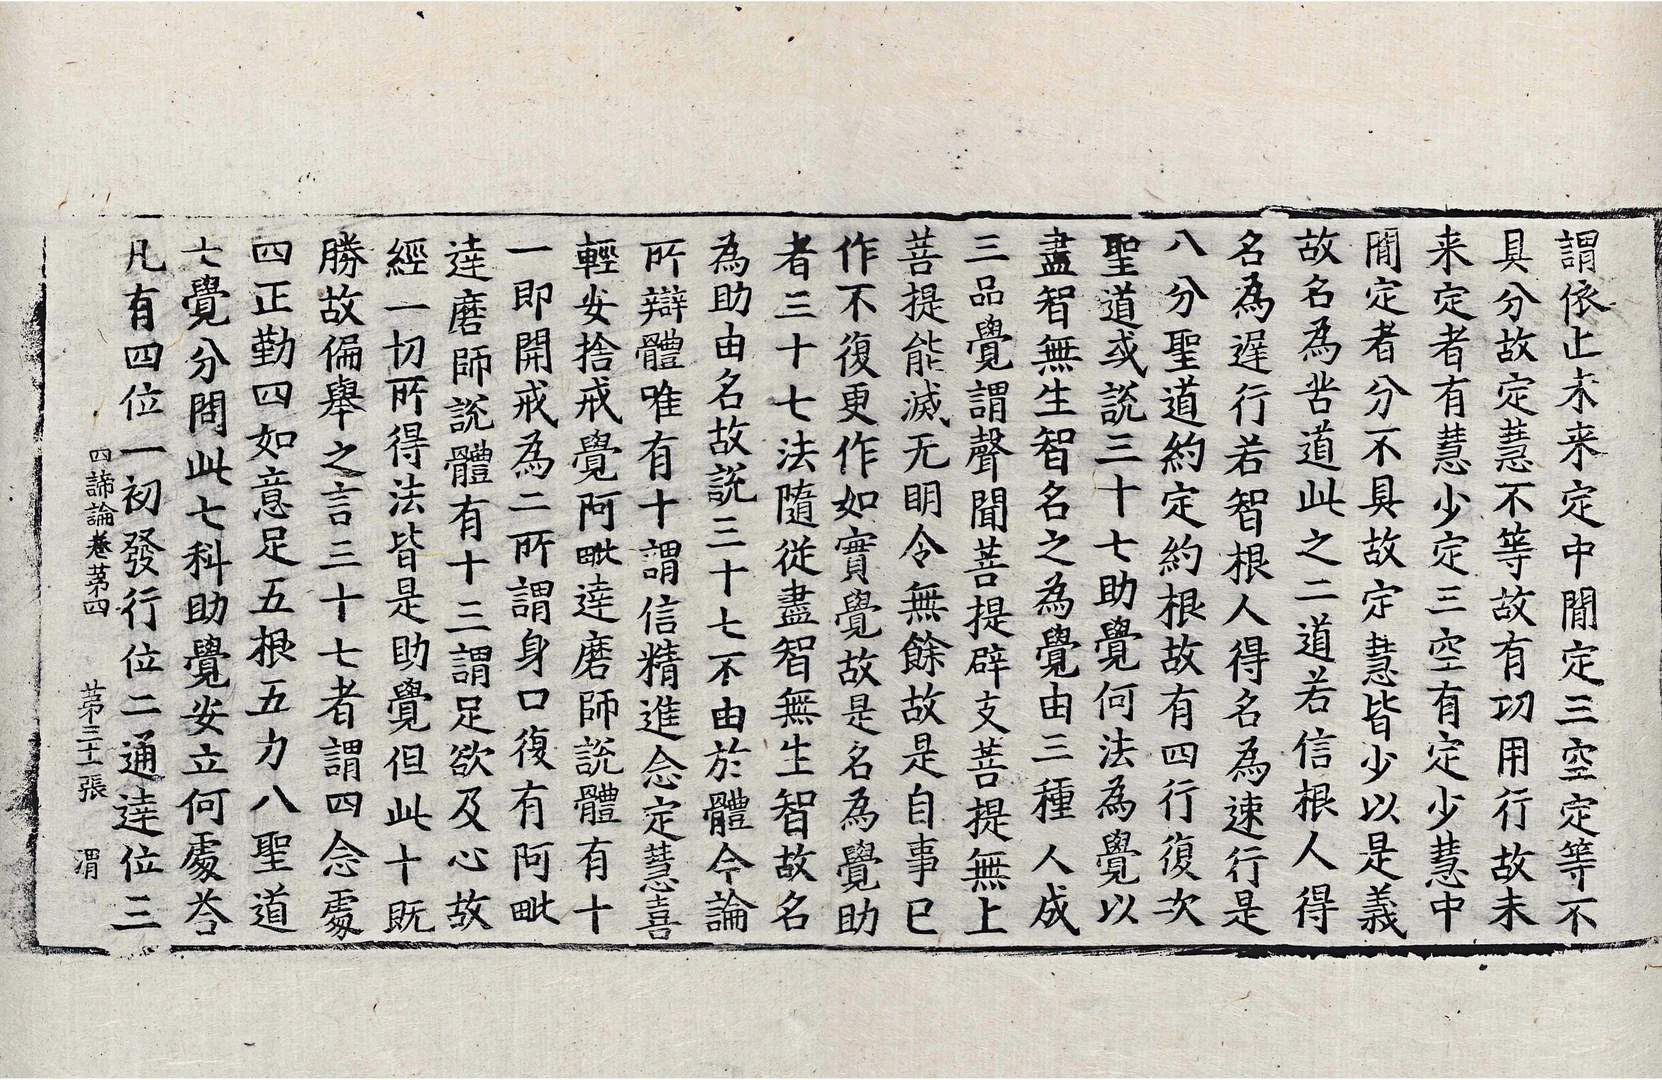 謂依止未来定中間定三空定等不
具分故定慧不等故有功用行故未
来定者有慧少定三空有定少慧中
間定者分不具故定慧皆少以是義
故名為苦道此之二道若信根人得
名為遅行若智根人得名為速行是
八分聖道約定約根故有四行復次
聖道或説三十七助覺何法為覺以
盡智無生智名之為覺由三種人成
三品覺謂聲聞菩提辟支菩提無上
菩提能滅无明令無餘故是自事已
作不復更作如實覺故是名為覺助
者三十七法隨從盡智無生智故名
為助由名故説三十七不由於體今論
所辯體唯有十謂信精進念定慧喜
輕安捨戒覺阿毗達磨師説體有十
一即開戒為二所謂身口復有阿毗
達磨師説體有十三謂足欲及心故
經一切所得法皆是助覺但此十既
勝故偏舉之言三十七者謂四念處
四正勤四如意足五根五力八聖道
七覺分問此七科助覺安立何處荅
凡有四位一初發行位二通達位三
四諦論卷苐四　苐三十一張　渭